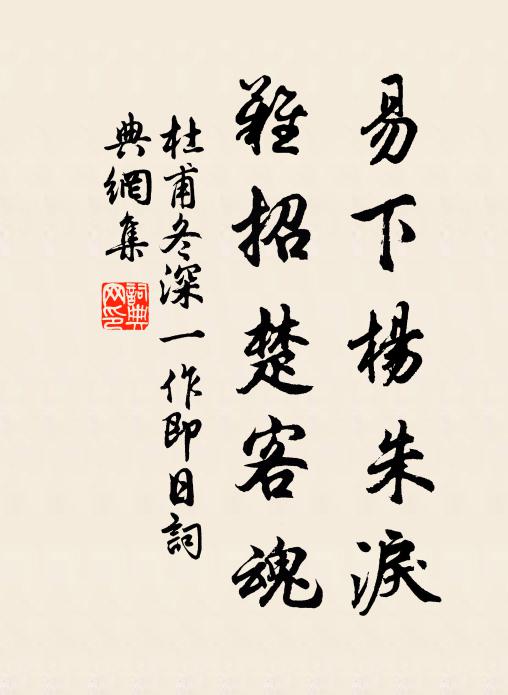 易下楊朱淚
難招楚客魂
杜甫冬深一作即日詞
典網集
詞典
网印